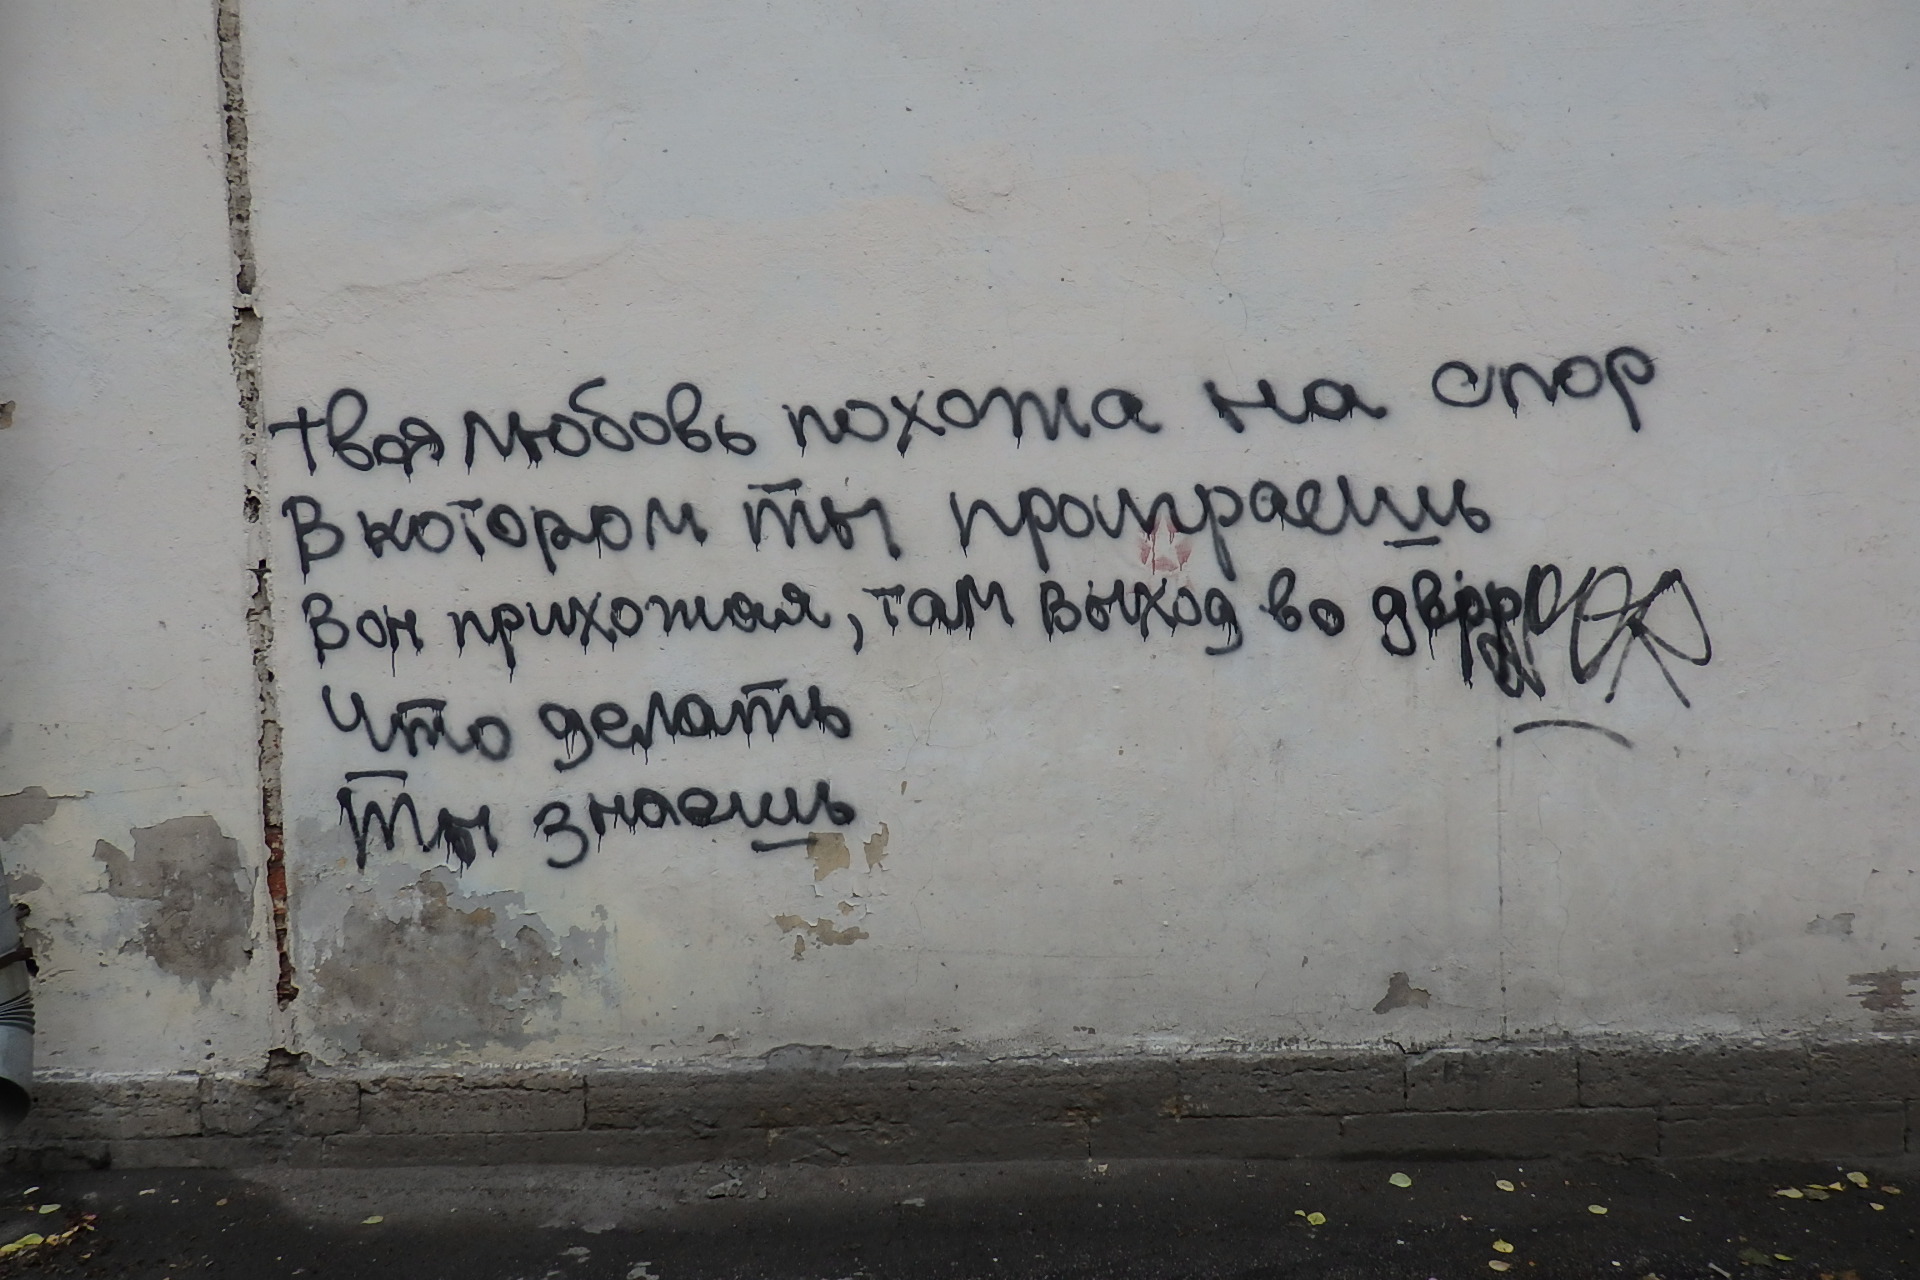 твоя любовь похожа на спор
В котором ты проиграешь
Вон прихожая, там выход во двор
Что делать
Ты знаешь